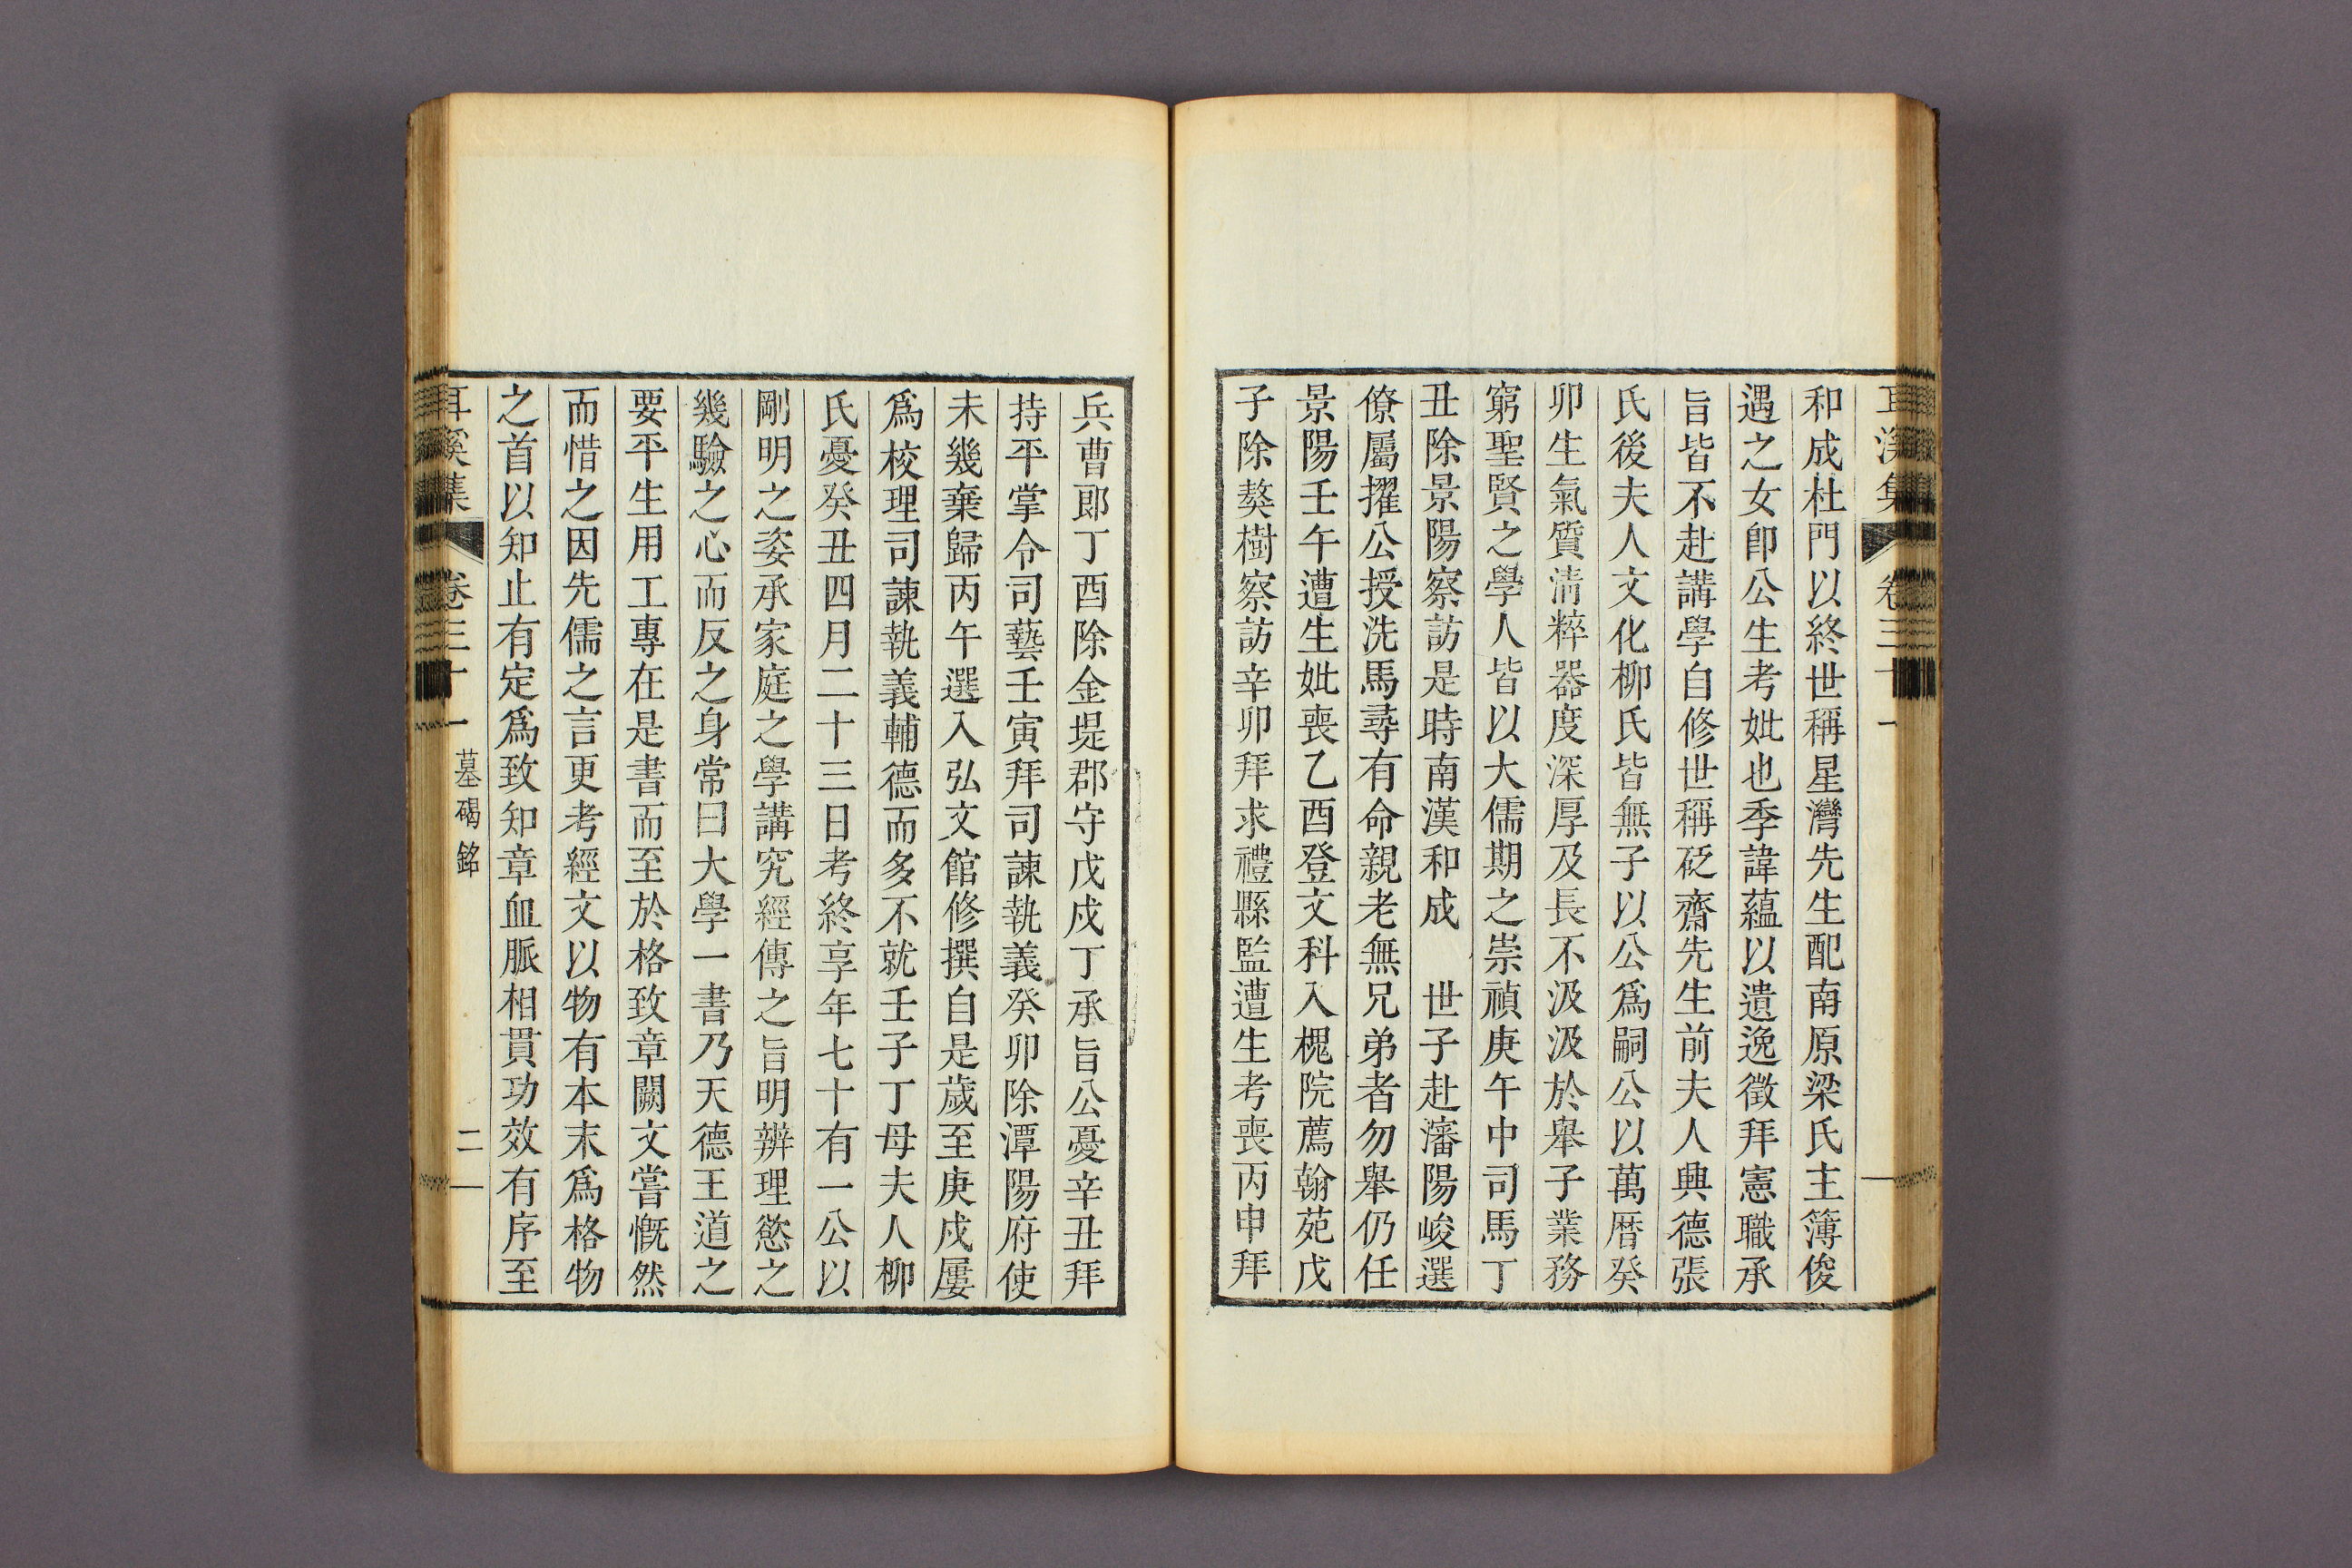 耳溪集 卷三十一
和成杜門以終世稱星灣先生配南原梁氏主簿俊
遇之女卽公生考妣也季諱蘊以遺逸徵拜憲職承
旨皆不赴講學自修世稱砭齋先生前夫人興德張
氏後夫人文化柳氏皆無子以公爲嗣公以萬曆癸
卯生氣質淸粹器度深厚及長不汲汲於舉子業務
窮聖賢之學人皆以大儒期之崇禎庚午中司馬丁
丑除景陽察訪是時南漢和成 世子赴瀋陽峻選
僚屬擢公授洗馬尋有命親老無兄弟者勿舉仍任
景陽壬午遭生妣喪乙酉登文科入槐院薦翰苑戊
子除獒樹察訪辛卯拜求禮縣監遭生考喪丙申拜
兵曹郎丁酉除金堤郡守戊戌丁承旨公憂辛丑拜
持平掌令司藝壬寅拜司諫執義癸卯除潭陽府使
未幾棄歸丙午選入弘文館修撰自是歲至庚戌屢
爲校理司諫執義輔德而多不就壬子丁母夫人柳
氏憂癸丑四月二十三日考終享年七十有一公以
剛明之姿承家庭之學講究經傳之旨明辨理慾之
幾驗之心而反之身常曰大學一書乃天德王道之
要平生用工專在是書而至於格致章闕文嘗慨然
而惜之因先儒之言更考經文以物有本末爲格物
之首以知止有定爲致知章血脈相貫功效有序至
耳溪集 卷三十一 墓碣銘 二